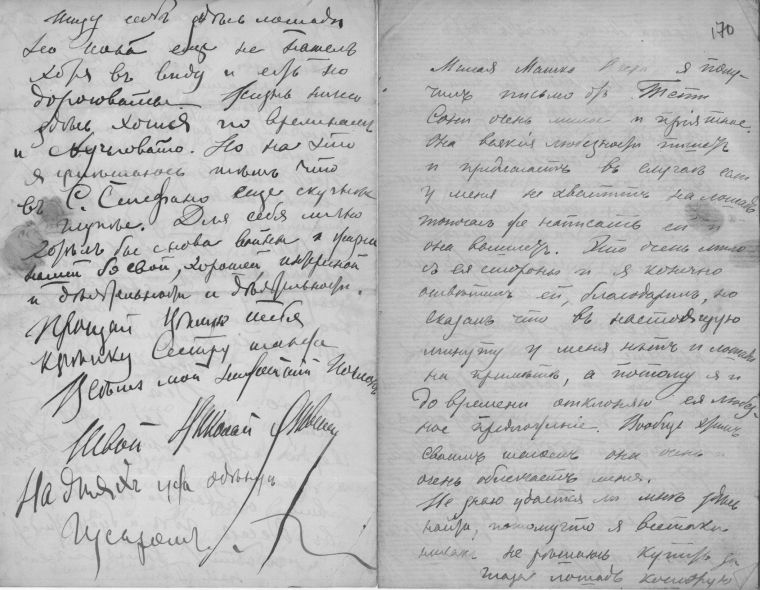 Ищу себѣ здѣсь лошадь
но пока еще не нашелъ
хотя въ виду и есть но
дороговаты. Жизнь ничего
здѣсь хотя по временамъ
и скучновато. Но на что
я утѣшаюсь тѣмъ что
въ С. Стефано еще скучнѣе
и глупѣе. Для себя лично
хотѣлъ бы снова войны и жизни
нашей боевой, хорошей
и дѣятельности и дѣятельности.
Прощай цѣлую тебя
крѣпко Сестру
Всѣмъ мой поклонъ
Твой Николай
На дняхъ одѣнусь
Гусаромъ.
170
Милая Машка я полу-
чилъ письмо отъ Тети
Сони очень милое и приятное.
Она всякія любезности пишетъ
и предлагаетъ въ случаѣ если
у меня не хватитъ на лошадь
тотчасъ же написать ей и
она вышлетъ. Это очень мило
съ ея стороны и я конечно
отвѣтилъ ей, благодарилъ, но
сказалъ что въ настоящую
минуту у меня нѣтъ и лошади
на примѣтѣ, а потому я и
до времени отклоняю ея любез-
ное предложение. Вообще
своимъ она очень и
очень облегчаетъ меня.
Не знаю удастся ли мнѣ здѣсь
найти, потому что я всетаки
никакъ не рѣшаюсь купить
лошадь которую